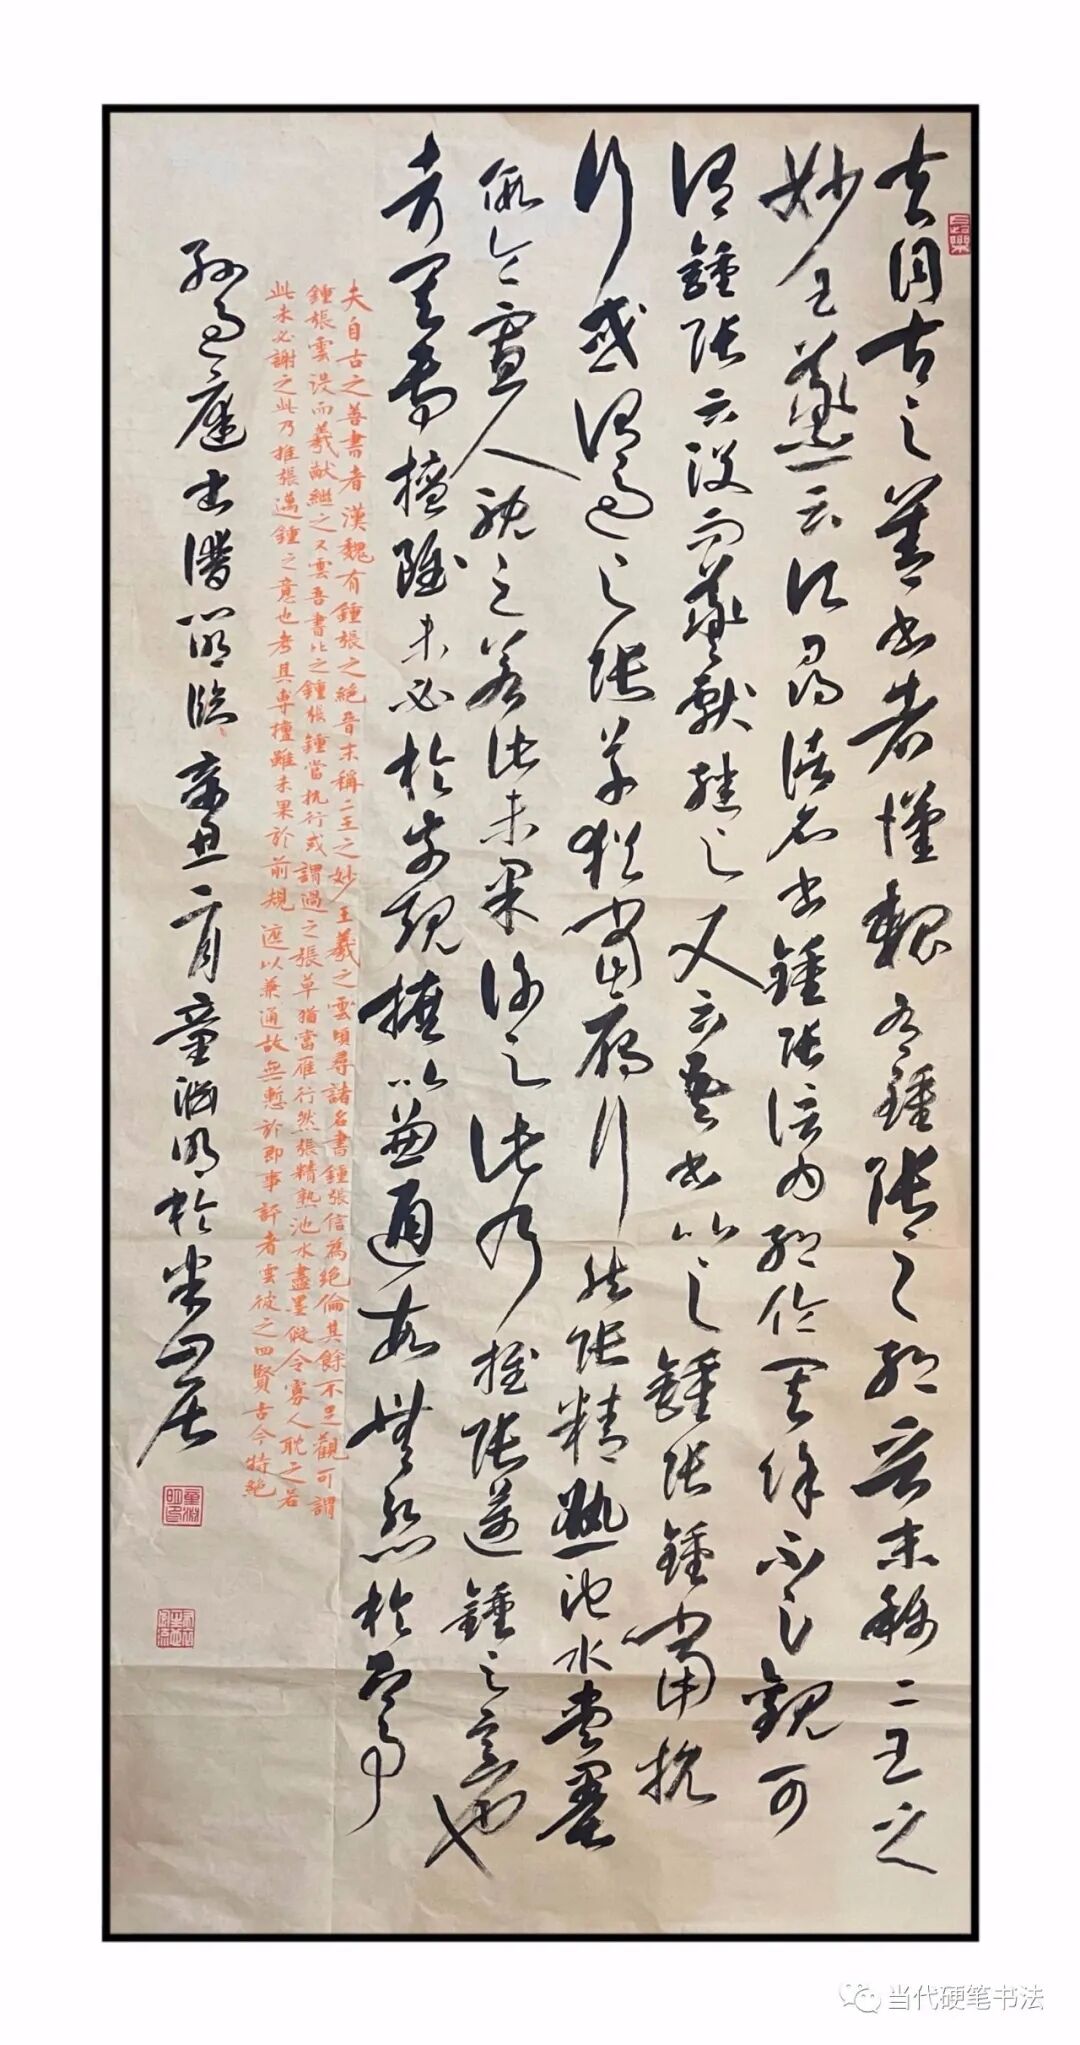 夫自古之善書者漢魏有鍾張之絕晉末稱二王之
妙王羲之云頃尋諸名書鍾張信為絕倫其餘不足觀可
謂鍾張云沒而羲獻繼之又云吾書比之鍾張鍾當抗
行或謂過之張草猶當雁行然張精熟池水盡墨
假令寡人耽之若此未果謝之此乃推張邁鍾之意也
考其專擅雖未必於前規摭以兼通故無慙於即事
夫自古之善書者漢魏有鍾張之絕晉末稱二王之妙王羲之雲頃尋諸名書鍾張信為絕倫其餘不足觀可謂
鍾張雲沒而羲献繼之又雲吾書比之鍾張鍾當抗行或謂過之張草猶當雁行然張精熟池水盡墨假令寡人耽之若
此未必謝之此乃推張邁鍾之意也考其專擅雖未果於前規遮以兼通故無慙於即事評者雲彼之四賢古今特絕
孫過庭书譜節臨辛丑二月童淵明於半山居
当代硬笔书法